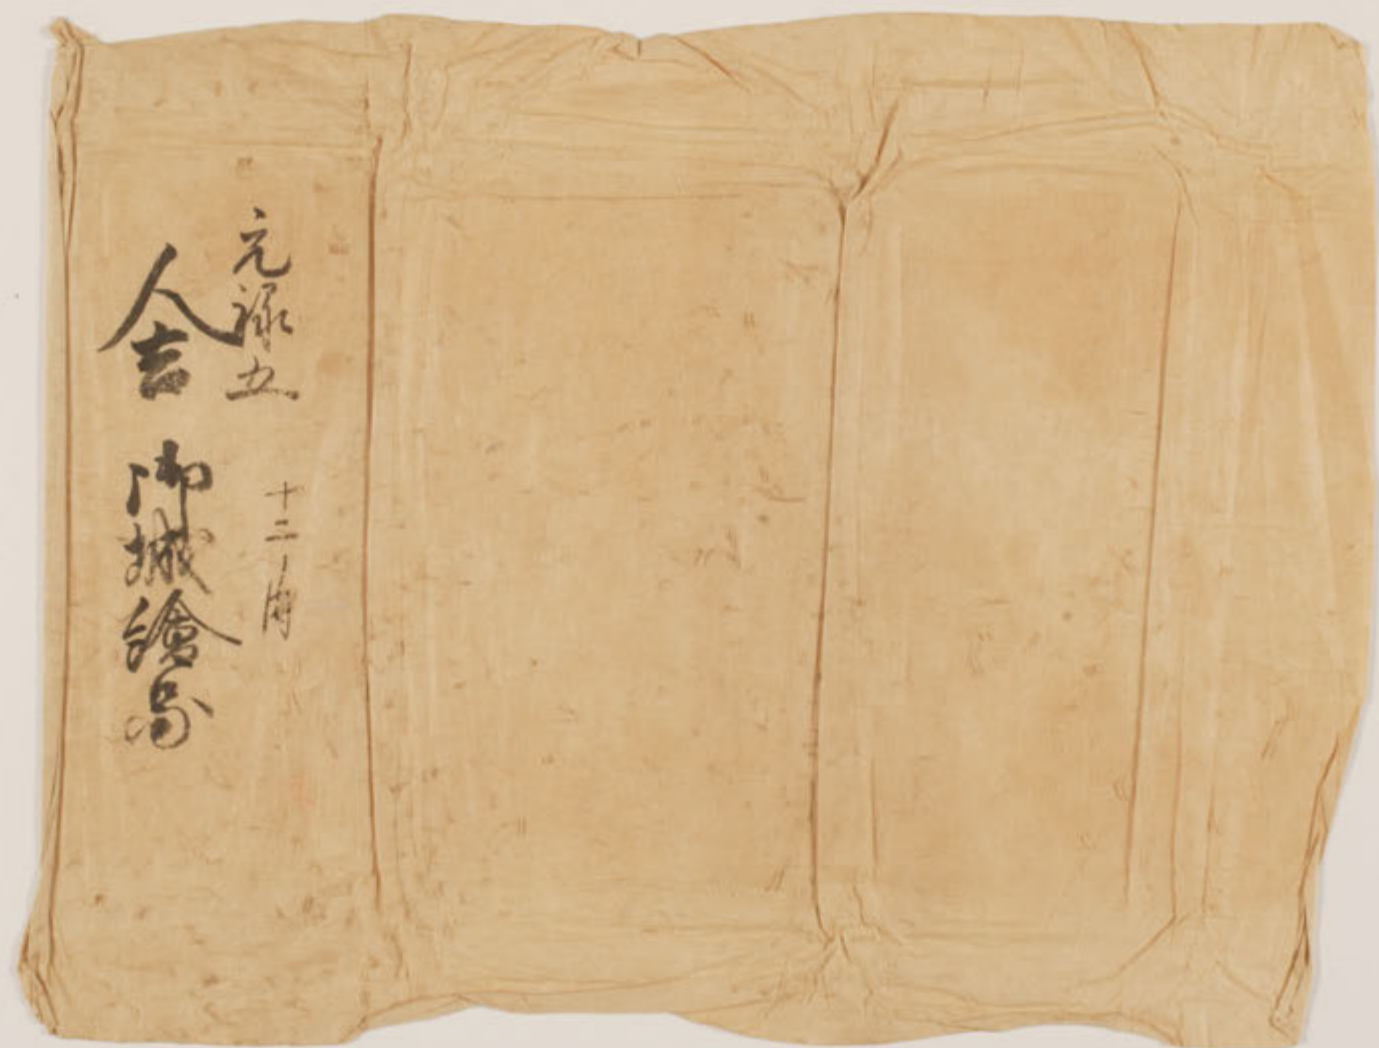 元禄五
十二ノ内
人吉 御城繪図